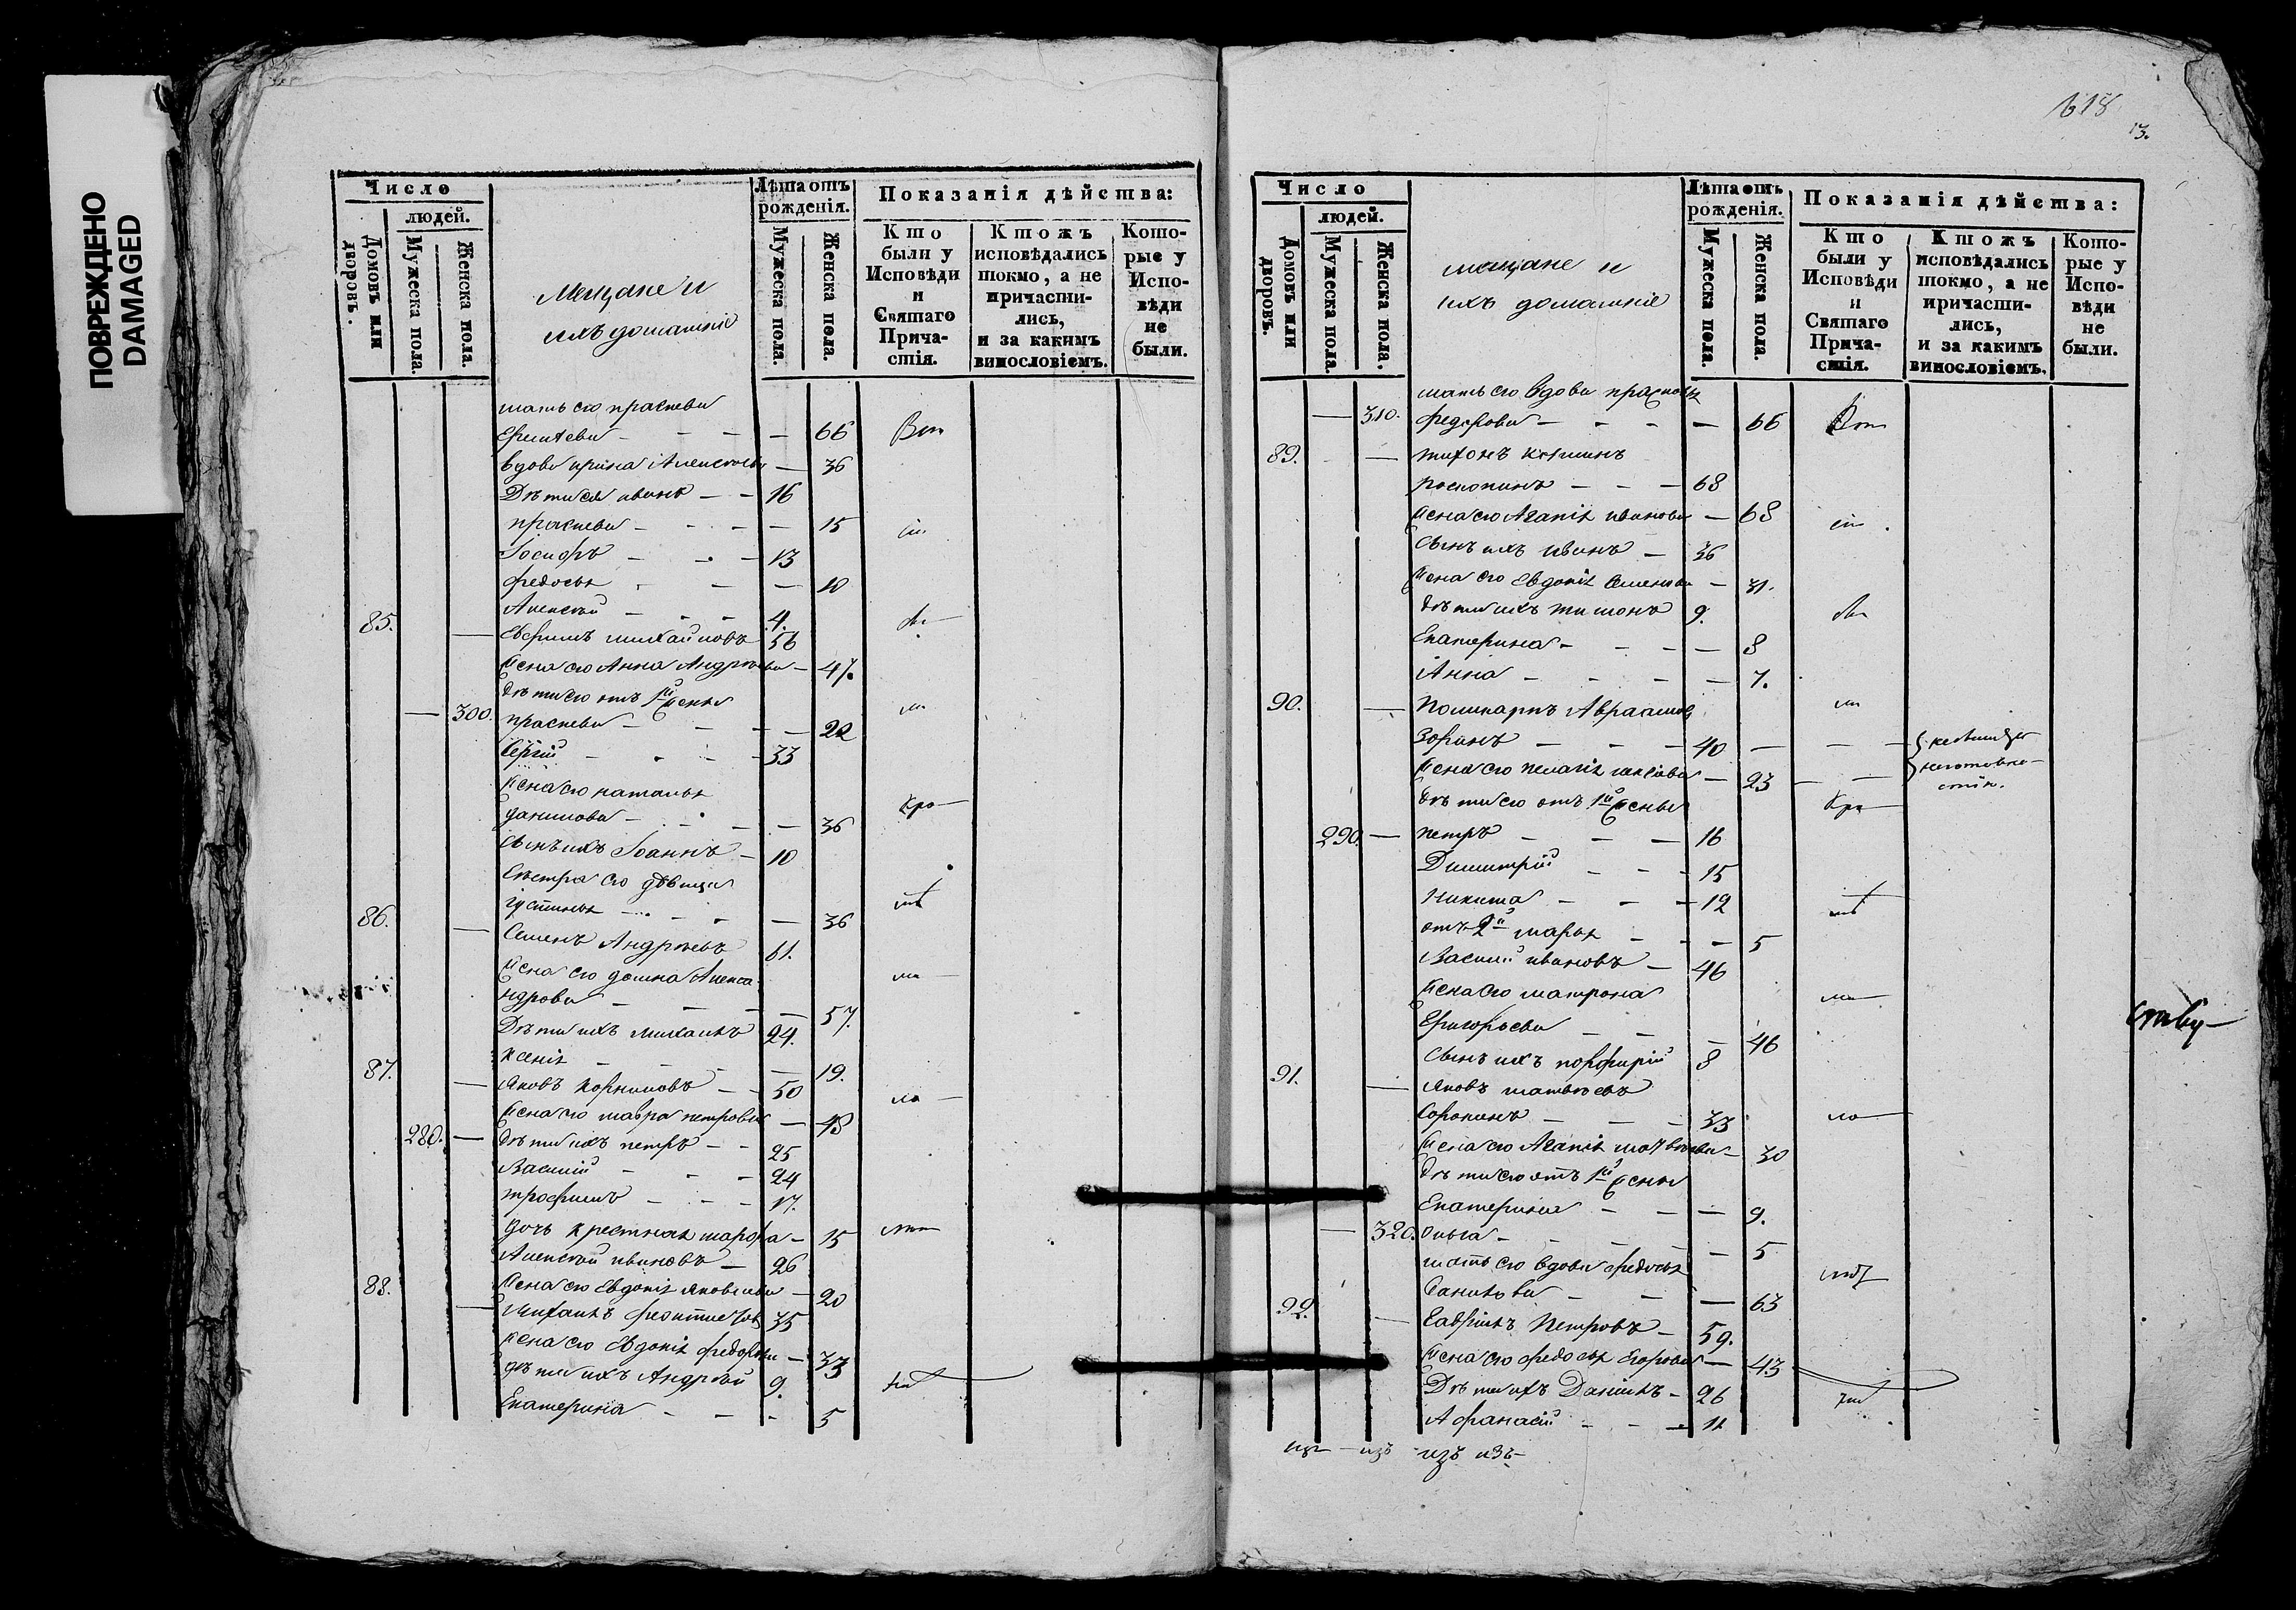 ПОВРЕЖДЕНО
DAMAGED
Число
людей.
Домовъ или дворовъ.
Мужеска пола.
Женска пола.
Мещане и
ихъ домашніе
Лѣта отъ рожденія.
Мужеска пола.
Женска пола.
Показанія дѣйства:
Кто были у Исповѣди и Святаго Причастія.
Ктожъ исповѣдались токмо, а не причастились, и за какимъ винословіемъ.
Которые у Исповѣди не были.
мать его праскева
— 66
вдова ирина Алексеева — 36
Дѣти ея иванъ — — 16
праскева — — — 15
Іосифъ — — 13
федосья — — 10
Алексѣй — — 4.
85. — Ефримъ михайловъ 56
жена его Анна Андреева — 47.
дѣти его отъ 1й жены
— 300. праскева — — — 22
Сергій — — 33
жена его наталья
данилова — — — 36
сынъ ихъ Іоаннъ — 10
сестра его дѣвица
устинья — — — 36
86. — Семенъ Андреевъ 61.
жена его домна Алекса
ндрова — — — 57.
Дѣти ихъ михаилъ 24.
ксенія — — — 19.
87. — Яковъ Корниловъ — 50
жена его мавра петрова — 48
280. — дѣти ихъ петръ — — 25
Василій — — 24
трофимъ — — 17.
дочь крестная марфа — 15
Алексѣй ивановъ — 26
жена его Евдокія яковлева — 20
88. — Михаилъ 35
жена его Евдокія федорова — 33
дѣти ихъ Андрей 9.
Екатерина — — — 5
618
13.
Число
людей.
Домовъ или дворовъ.
Мужеска пола.
Женска пола.
мещане и
ихъ домашніе
Лѣта отъ рожденія.
Мужеска пола.
Женска пола.
Показанія дѣйства:
Кто были у Исповѣди и Святаго Причастія.
Ктожъ исповѣдались токмо, а не причастились, и за какимъ винословіемъ.
Которые у Исповѣди не были.
мать его вдова прасковья
— 310. федорова — — — 66
89. — тихонъ козминъ
— — — 68
жена его Агапія иванова — 68
сынъ ихъ иванъ — 36
жена его Евдокія Семенова — 31.
дѣти ихъ тимонъ 9.
Екатерина — — — 8
Анна — — — 7.
90. — Поликарпъ Авраамовъ
Зоринъ — — — 40 — — —
жена его пелагія — 23 — —
дѣти его отъ 1й жены
290. — петръ — — — 16
Димитрій — — 15
Никита — — — 12
отъ 2й марья — — — 5
Василій ивановъ — 46
жена его матрона
Григорьева — — — 46
сынъ ихъ порфирій 8
91. — Яковъ матвѣевъ
Сорокинъ — — — 33
жена его Агапія — 30
дѣти его отъ 1й жены
Екатерина — — — 9.
— 320. ольга — — — 5
мать его вдова федосья
— — — 63
92. — Гавріилъ Петровъ — 59.
жена его федосья Егорова — 43
Дѣти ихъ Даніилъ — 26
Афанасій — — — 11